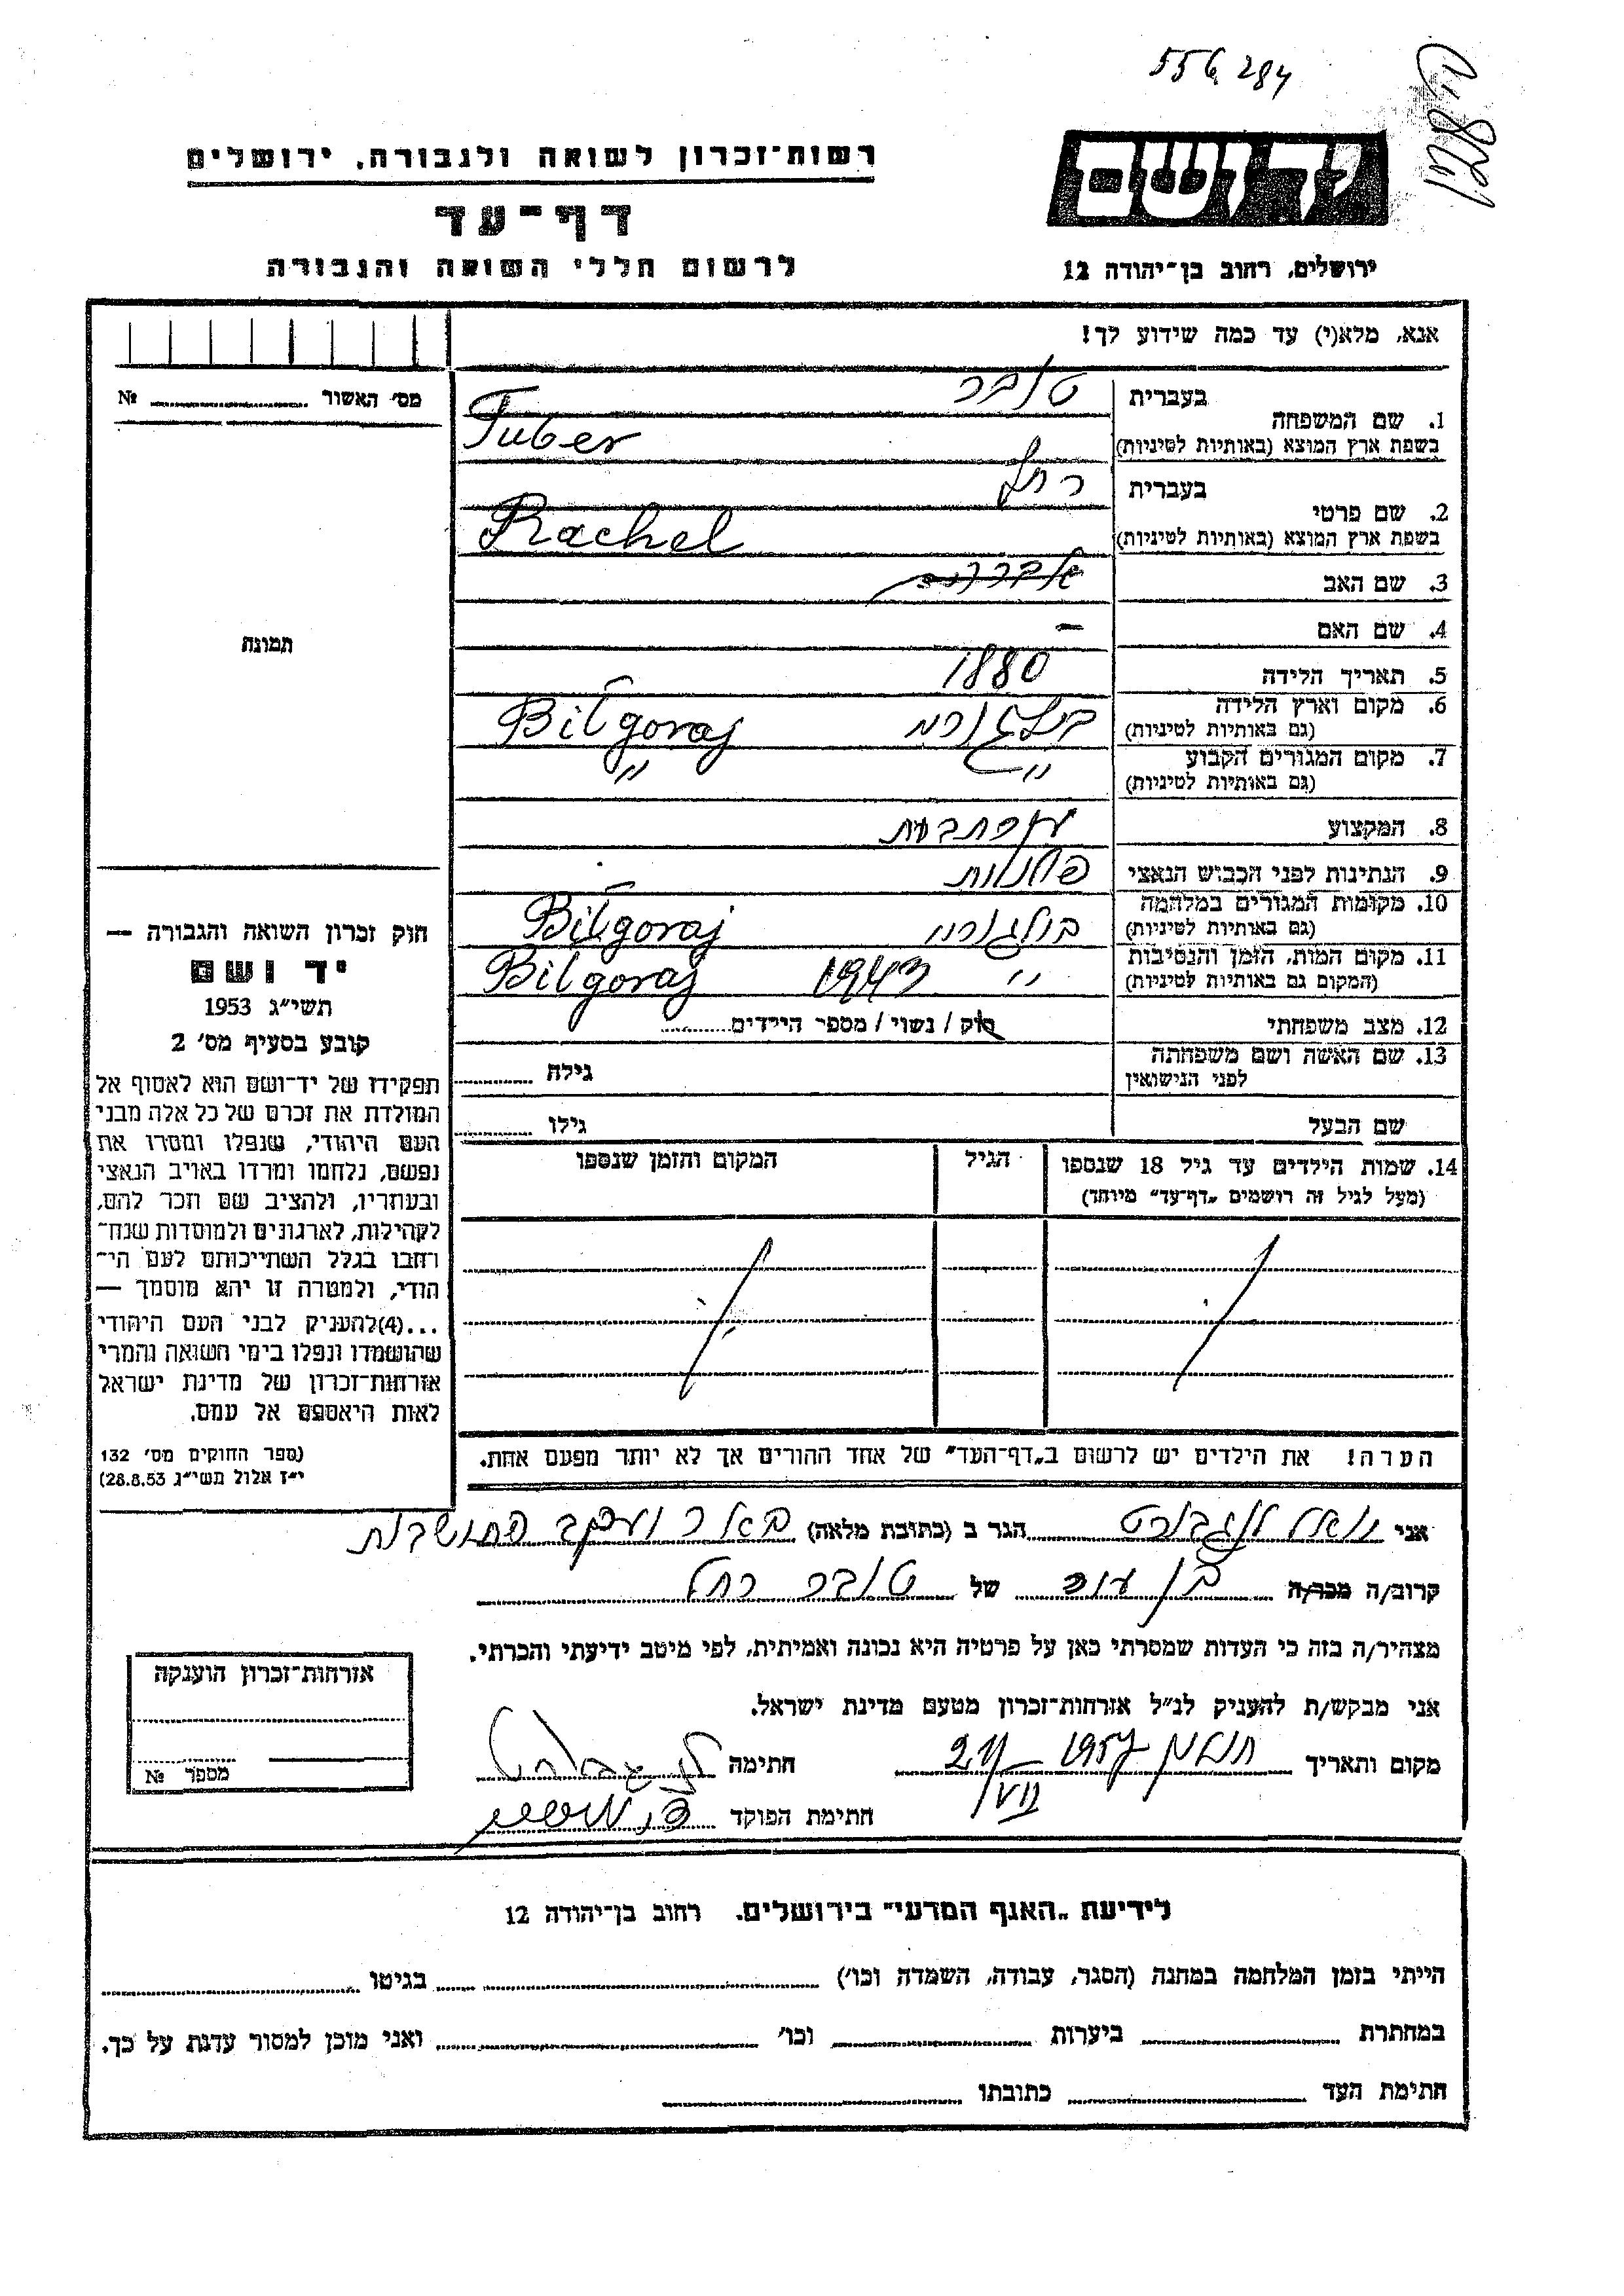 556 284
רשות־זכרון לשואה ולגבורה, ירושלים
דף־עד
לרשום חללי השואה והגבורה
יד ושם
ירושלים, רחוב בן־יהודה 12
אנא, מלא(י) עד כמה שידוע לך!
מס׳ האשור № 
תמונה
1. שם המשפחה בעברית טובר
בשפת ארץ המוצא (באותיות לטיניות) Tuber
2. שם פרטי בעברית רחל
בשפת ארץ המוצא (באותיות לטיניות) Rachel
3. שם האב
4. שם האם –
5. תאריך הלידה 1880
6. מקום וארץ הלידה בילגורי Biłgoraj
(גם באותיות לטיניות)
7. מקום המגורים הקבוע " "
(גם באותיות לטיניות)
8. המקצוע
9. הנתינות לפני הכבוש הנאצי פולנית
10. מקומות המגורים במלחמה בילגורי Biłgoraj
(גם באותיות לטיניות)
11. מקום המות, הזמן והנסיבות " 1943 Bilgoraj
(המקום גם באותיות לטיניות)
12. מצב משפחתי רוק / נשוי / מספר הילדים
13. שם האשה ושם משפחתה גילה
לפני הנישואין
שם הבעל גילו
14. שמות הילדים עד גיל 18 שנספו הגיל המקום והזמן שנספו
(מעל לגיל זה רושמים „דף־עד" מיוחד)
הערה! את הילדים יש לרשום ב„דף־העד" של אחד ההורים אך לא יותר מפעם אחת.
חוק זכרון השואה והגבורה —
יד ושם
תשי״ג 1953
קובע בסעיף מס׳ 2
תפקידו של יד־ושם הוא לאסוף אל
המולדת את זכרם של כל אלה מבני
העם היהודי, שנפלו ומסרו את
נפשם, נלחמו ומרדו באויב הנאצי
ובעוזריו, ולהציב שם וזכר להם,
לקהילות, לארגונים ולמוסדות שנח־
רבו בגלל השתייכותם לעם הי־
הודי, ולמטרה זו יהא מוסמך —
...(4)להעניק לבני העם היהודי
שהושמדו ונפלו בימי השואה והמרי
אזרחות־זכרון של מדינת ישראל
לאות היאספם אל עמם.
(ספר החוקים מס׳ 132
י״ז אלול תשי״ג 28.8.53)
אני הגר ב (כתובת מלאה) באר יעקב
קרוב/ה מכר/ה בן עיר של טובר רחל
מצהיר/ה בזה כי העדות שמסרתי כאן על פרטיה היא נכונה ואמיתית, לפי מיטב ידיעתי והכרתי.
אני מבקש/ת להעניק לנ״ל אזרחות־זכרון מטעם מדינת ישראל.
מקום ותאריך 1957 חתימה
VII
חתימת הפוקד
אזרחות־זכרון הוענקה
מספר №
לידיעת „האגף המדעי" בירושלים. רחוב בן־יהודה 12
הייתי בזמן המלחמה במחנה (הסגר, עבודה, השמדה וכו׳) בגיטו
במחתרת ביערות וכו׳ ואני מוכן למסור עדות על כך.
חתימת העד כתובתו